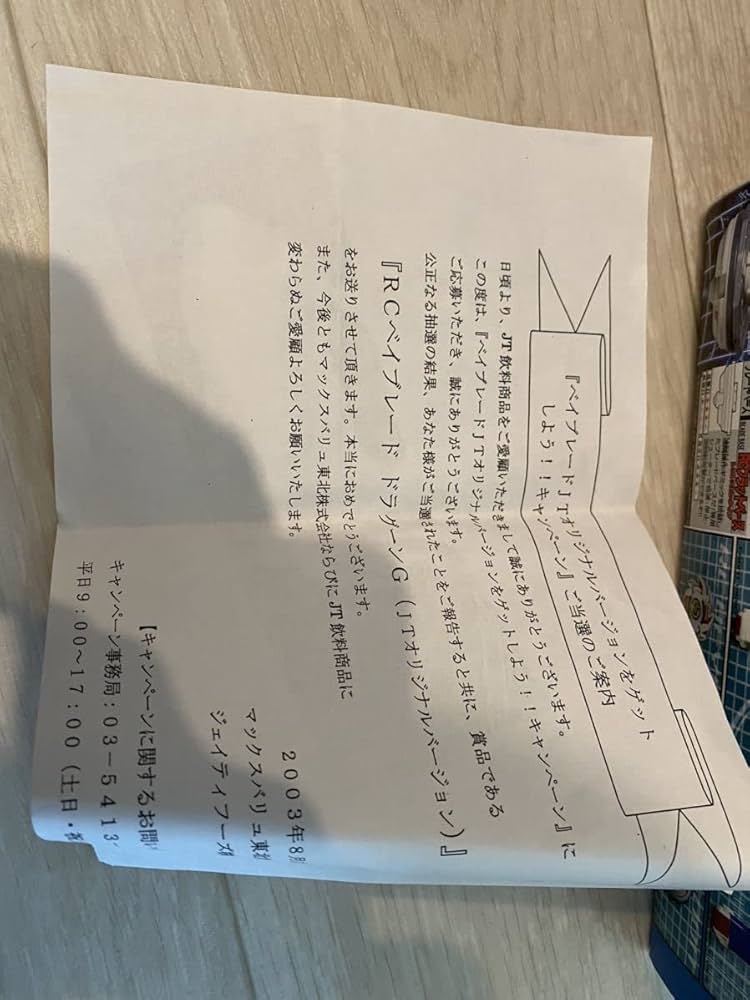 『ベイブレードJTオリジナルバージョンをゲット
しよう！！キャンペーン』ご当選のご案内
日頃より、JT飲料商品をご愛顧いただきまして誠にありがとうございます。
この度は、『ベイブレードJTオリジナルバージョンをゲットしよう！！キャンペーン』に
ご応募いただき、誠にありがとうございます。
公正なる抽選の結果、あなた様がご当選されたことをご報告すると共に、賞品である
『RCベイブレード ドラグーンG（JTオリジナルバージョン）』
をお送りさせて頂きます。本当におめでとうございます。
また、今後ともマックスバリュ東北株式会社ならびにJT飲料商品に
変わらぬご愛顧よろしくお願いいたします。
2003年8月
マックスバリュ東北
ジェイティフーズ
【キャンペーンに関するお問い
キャンペーン事務局：03－5413
平日9：00～17：00（土日・祝